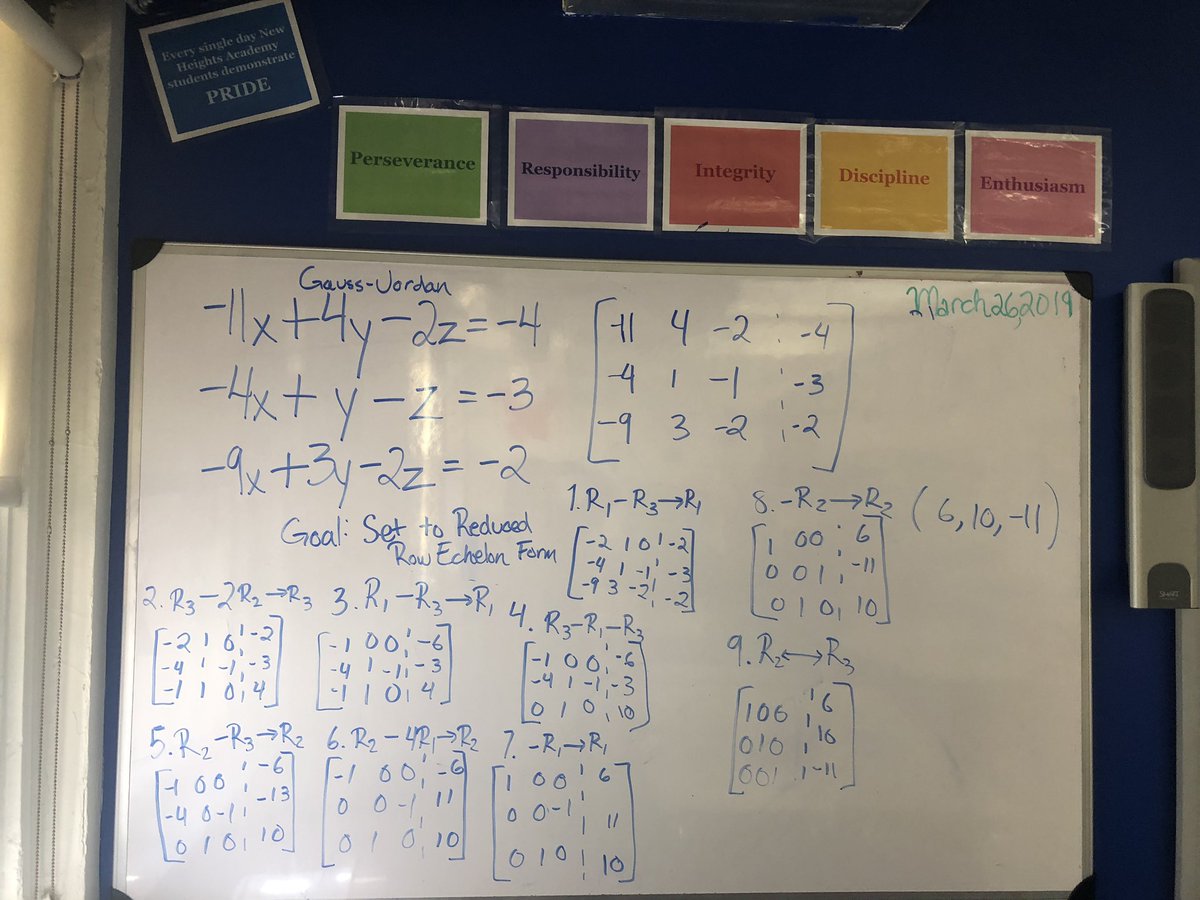 Every single day New
Heights Academy
students demonstrate
PRIDE
Perseverance
Responsibility
Integrity
Discipline
Enthusiasm
March 26, 2019
Gauss-Jordan
-11x+4y-2z=-4
-4x+y-z=-3
-9x+3y-2z=-2
-11 4 -2 ¦ -4
-4 1 -1 ¦ -3
-9 3 -2 ¦ -2
Goal: Set to Reduced
Row Echelon Form
1. R₁-R₃→R₁
-2 1 0 ¦ -2
-4 1 -1 ¦ -3
-9 3 -2 ¦ -2
2. R₃-2R₂→R₃
-2 1 0 ¦ -2
-4 1 -1 ¦ -3
-1 1 0 ¦ 4
3. R₁-R₃→R₁
-1 0 0 ¦ -6
-4 1 -1 ¦ -3
-1 1 0 ¦ 4
4. R₃-R₁-R₃
-1 0 0 ¦ -6
-4 1 -1 ¦ -3
0 1 0 ¦ 10
5. R₂-R₃→R₂
-1 0 0 ¦ -6
-4 0 -1 ¦ -13
0 1 0 ¦ 10
6. R₂-4R₁→R₂
-1 0 0 ¦ -6
0 0 -1 ¦ 11
0 1 0 ¦ 10
7. -R₁→R₁
1 0 0 ¦ 6
0 0 -1 ¦ 11
0 1 0 ¦ 10
8. -R₂→R₂
1 0 0 ¦ 6
0 0 1 ¦ -11
0 1 0 ¦ 10
9. R₂↔R₃
1 0 0 ¦ 6
0 1 0 ¦ 10
0 0 1 ¦ -11
(6,10,-11)
SMART